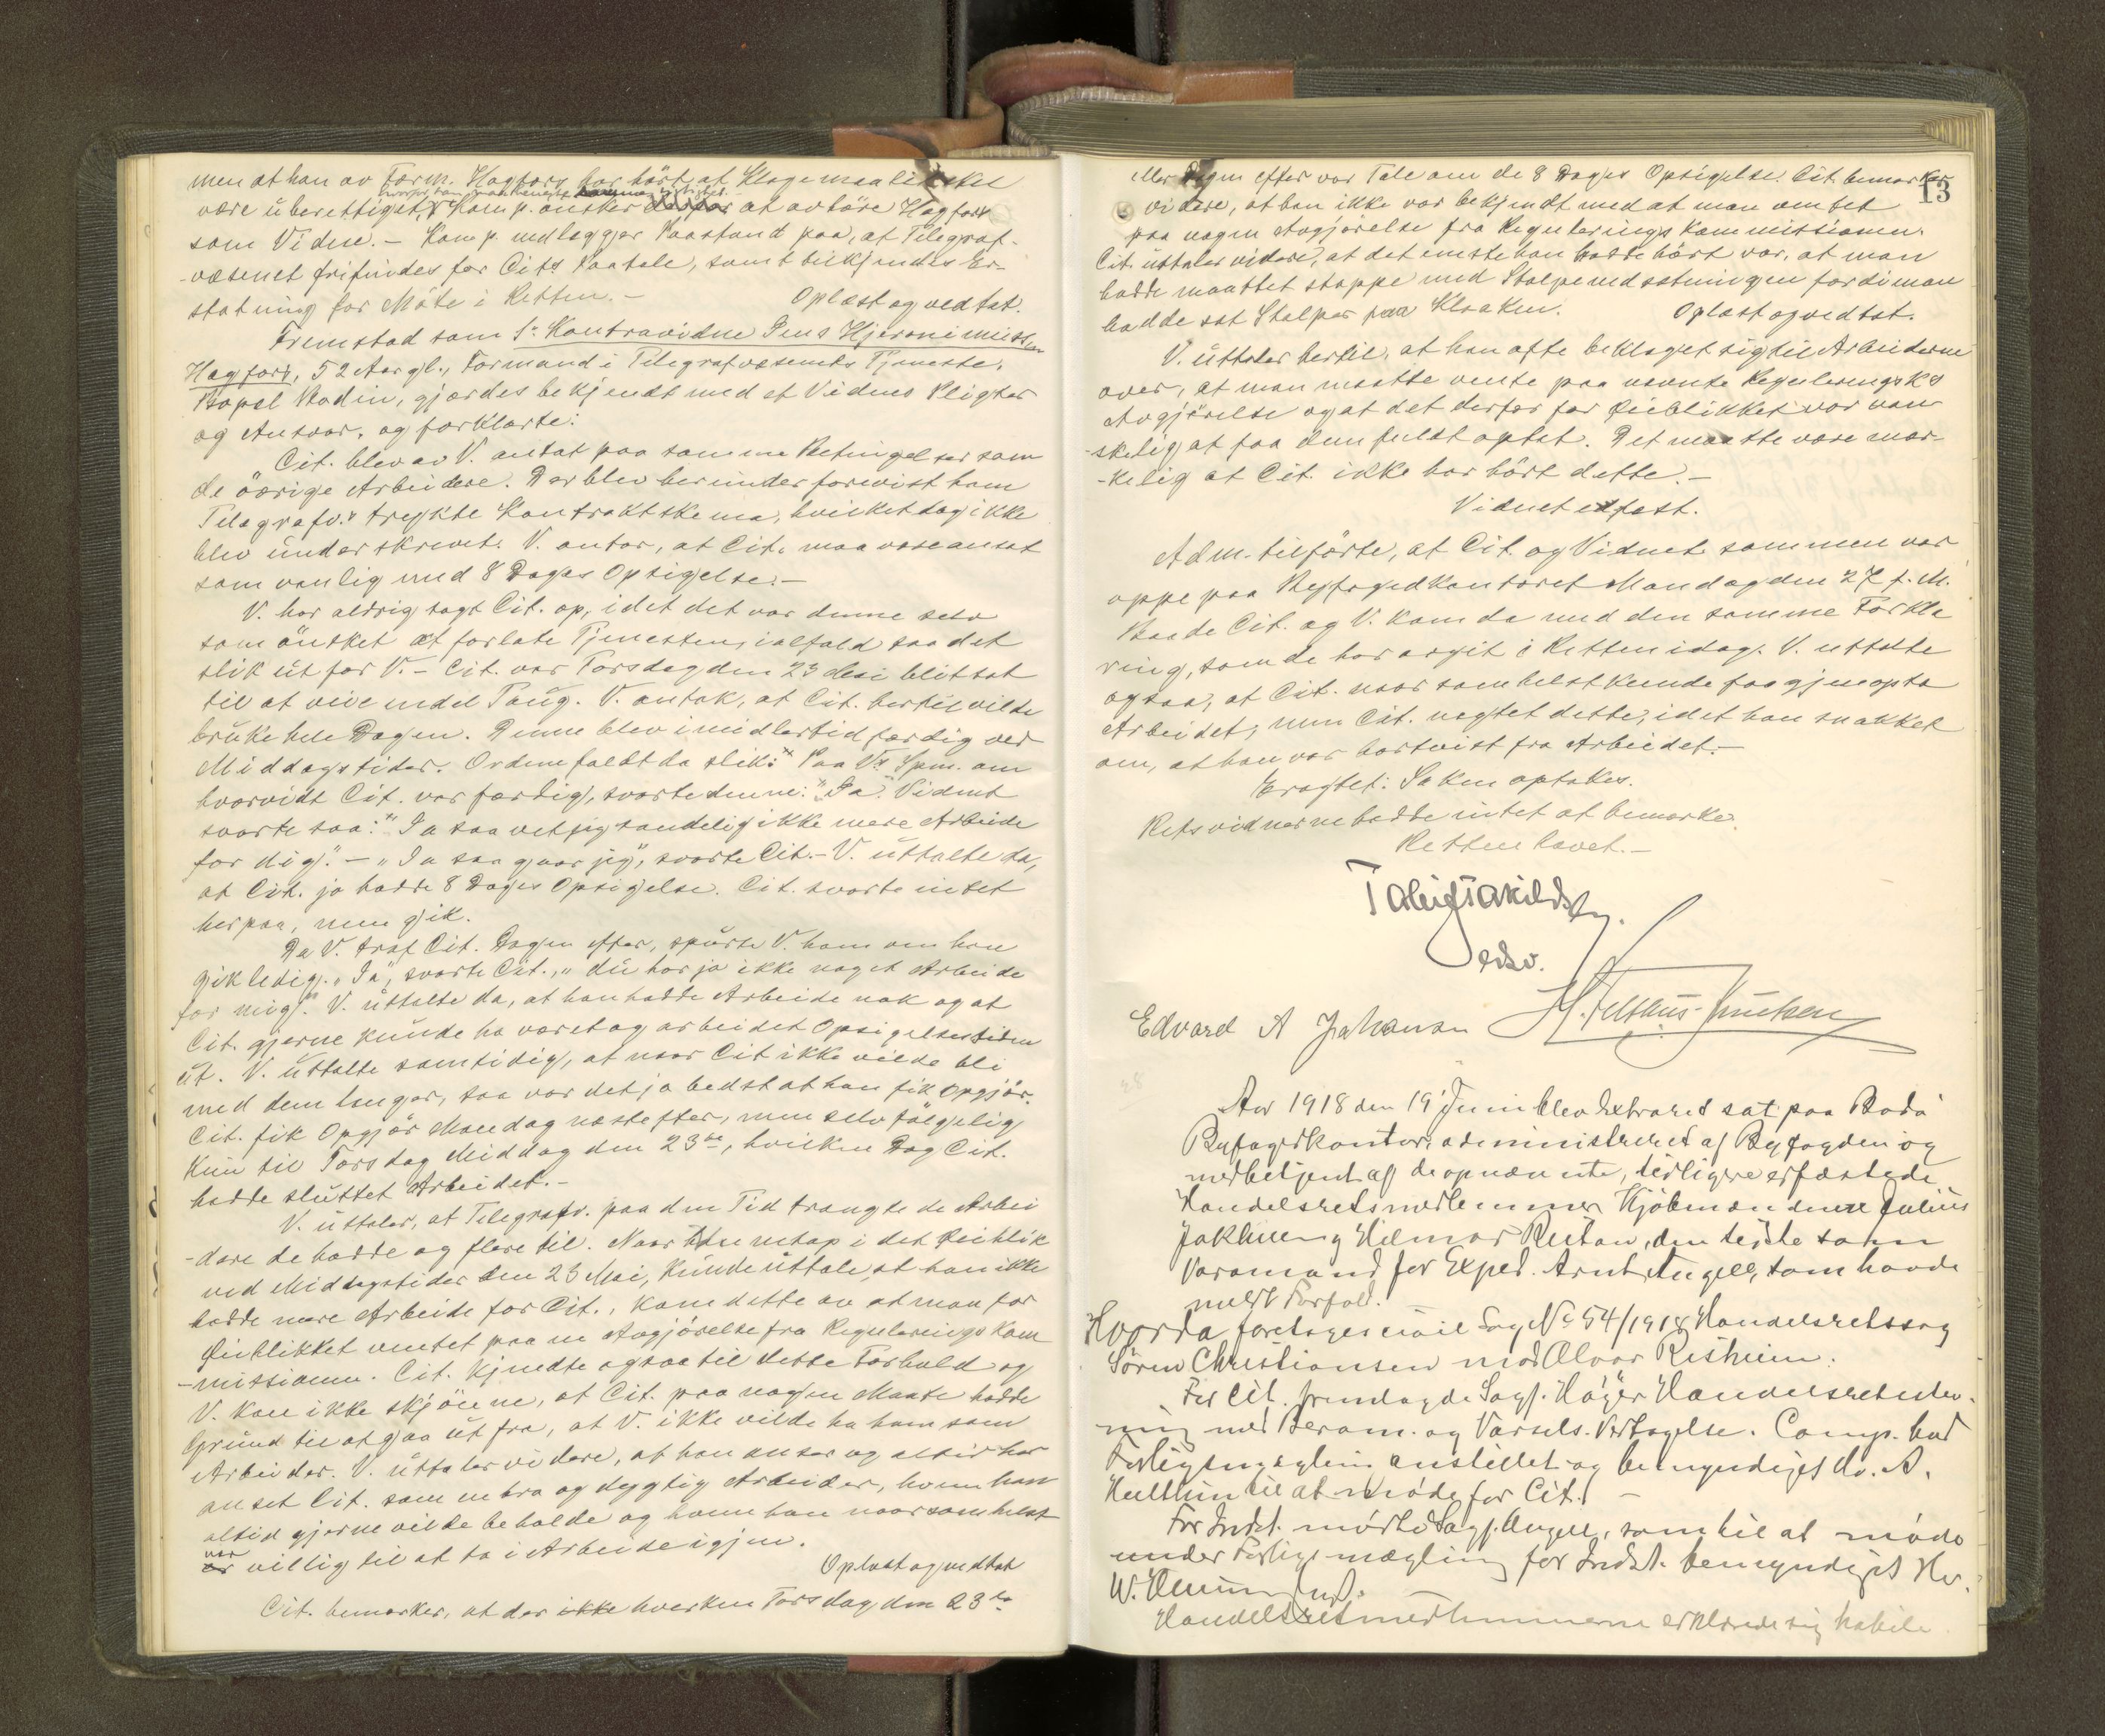 men at han av Form. Hagfors har hört at Klagemaalet skal
hvorfor han paa seneste
være uberettiget, Komp. önsker derfor at avhöre Hagfors
som Vidne. – Komp. nedlægger Paastand paa, at Telegraf-
-væsenet frifindes for Cits Paatale, samt tilkjendes Er-
statning for Möte i Retten. – Oplæst og vedtat.
Fremstod som 1ste Kontravidne Jens Hjeronimussen
Hagfors, 52 Aar gl., Formand i Telegrafvæsenets Tjeneste,
Bopæl Bodin, gjordes bekjendt med et Vidnes Pligter
og Ansvar, og forklarte:
Cit. blev av V. antat paa samme Betingelser som
de övrige Arbeidere. Der blev herunder forevist ham
Telegrafv.s trykte Kontraktskema, hvilket dog ikke
blev underskrevet. V. antar, at Cit. maa være ansat
som vanlig med 8 Dages Opsigelse. –
V. har aldrig sagt Cit. op, idet det var denne selv
som önsket at forlate Tjenesten, ialfald saa det
slik ut for V. – Cit. var Torsdag den 23 Mai blit sat
til at veie endel Taug. V. antok, at Cit. hertil vilde
bruke hele Dagen. Denne blev imidlertid færdig ved
Middagstider. Ordene faldt da slik: Paa V.s Spm. om
hvorvidt Cit. var færdig, svarte denne: "Ja". Vidnet
svarte saa: "Ja saa vet jeg sandelig ikke mere Arbeide
for dig". – "Ja saa gaar jeg", svarte Cit. – V. uttalte da,
at Cit. jo hadde 8 Dages Opsigelse. Cit. svarte intet
herpaa, men gik.
Da V. traf Cit. Dagen efter, spurte V. ham om han
gik ledig. "Ja", svarte Cit., "du har jo ikke noget Arbeide
for mig". V. uttalte da, at han hadde Arbeide nok og at
Cit. gjerne kunde ha været og arbeidet Opsigelsestiden
ut. V. uttalte samtidig, at naar Cit ikke vilde bli
med dem længer, saa var det jo bedst at han fik Opgjör.
Cit. fik Opgjör Mandag næstefter, men selvfölgelig
kun til Torsdag Middag den 23de, hvilken Dag Cit.
hadde sluttet Arbeidet. –
V. uttaler, at Telegrafv. paa den Tid trængte de Arbei
-dere de hadde og flere til. Naar V. i det Öieblik
ved Middagstider den 23 Mai, kunde uttale, at han ikke
hadde mere Arbeide for Cit., kom dette av at man for
Öieblikket ventet paa en Avgjörelse fra Regulerings Kom
-missionen. Cit. kjendte ogsaa til dette Forhold og
V. kan ikke skjönne, at Cit. paa nogen Maate hadde
Grund til at gaa ut fra, at V. ikke vilde ha ham som
Arbeider. V. uttaler videre, at han anser og altid har
anset Cit. som en bra og dygtig Arbeider, hvem han
altid gjerne vilde beholde og hvem han naarsomhelst
var
er villig til at ta i Arbeide igjen.
Oplæst og vedtat
Cit. bemerker, at der ikke hverken Torsdag den 23de
13
eller Dagen efter var Tale om de 8 Dages Opsigelse. Cit. bemerker
videre, at han ikke var bekjendt med at man ventet
paa nogen Avgjörelse fra Regulerings Kommissionen.
Cit. uttaler videre, at det eneste han hadde hört var, at man
hadde maattet stoppe med Stolpenedsætningen fordi man
hadde sat Stolper paa Kloaken. Oplæst og vedtat.
V. uttaler hertil, at han ofte beklaget sig til Arbeiderne
over, at man maatte vente paa nævnte Regulerings Ks
Avgjörelse og at det derfor for Öieblikket var van-
-skelig at faa dem fuldt optat. Det maatte være mær-
-kelig at Cit. ikke har hört dette. –
Vidnet edfæst.
Adm. tilförte, at Cit. og Vidnet sammen var
oppe paa Byfogedkontoret Mandag den 27 f. M.
Baade Cit. og V. kom da med den samme Forkla
ring, som de har avgit i Retten idag. V. uttalte
ogsaa, at Cit. naar somhelst kunde faa gjenopta
Arbeidet, men Cit. negtet dette, idet han snakket
om, at han var bortvist fra Arbeidet. –
Eragtet: Saken optakes.
Retsvidnerne hadde intet at bemerke.
Retten hævet. –
edsv.
Edvard A Johansen
Aar 1918 den 19' Juni blev Extraret sat paa Bodö
Byfogedkontor, administreret af Byfogden og
medbetjent af de opnævnte, tidligere edfæstede
Handelsretsmedlemmer Kjöbmændene Julius
Jakhelln og Hilmar Reitan, den sidste som
Varamand for Exped. Arnt Angell, som havde
meldt Forfald.
Hvorda foretoges civil Sag No 54/1918 Handelsretssag
Sören Christiansen mod Alvar Risheim.
For Cit. fremlagde Sagf. Höyer Handelsretsstev-
ning med Beram. og Varsels-Vedtagelse. Comp. bad
Forligsmægling anstillet og bemyndiget Hr. A.
til at möde for Cit. –
For Indst. mödte Sagf. Angell, som til at möde
under Forligsmægling for Indst. bemyndiget Hr.
W.
Handelsretsmedlemmerne erklærede sig habile.